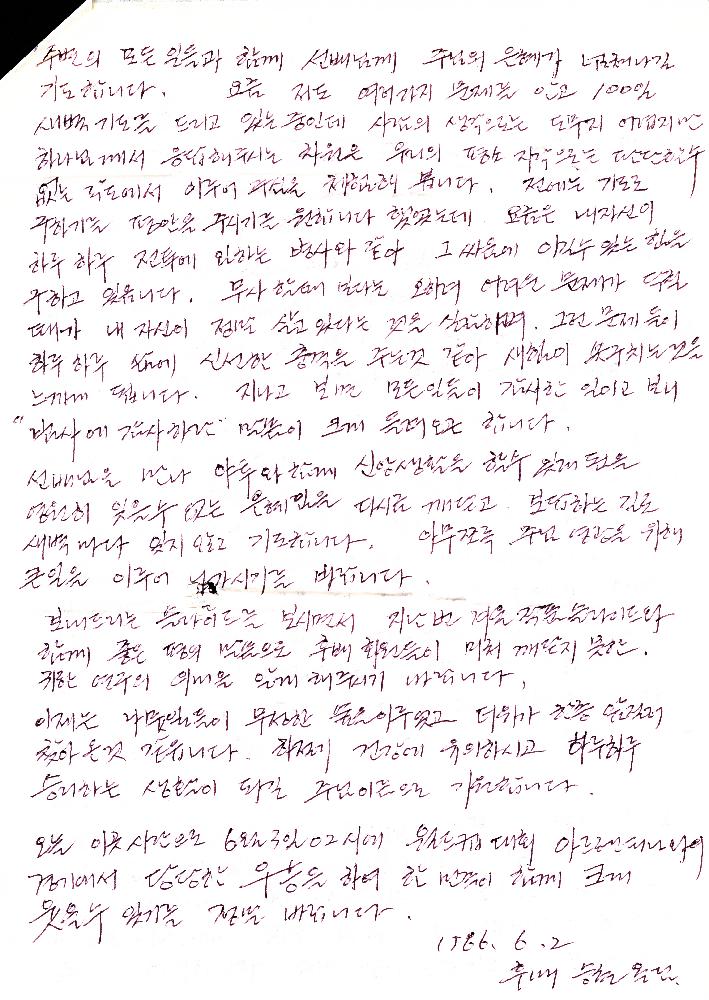 주변의 모든 일들과 함께 선배님께 주님의 은혜가 넘쳐나길
기도합니다. 요즘 저도 여러가지 문제를 안고 100일
새벽기도를 드리고 있는 중인데 사람의 생각으로는 도무지 어렵지만
하나님께서 응답해주시는 차원은 우리의 평소 자주으로는 판단할수
없는 각도에서 이루어 주심을 체험해 봅니다. 전에는 기도로
구하기를 평안을 주시기를 원합니다 했었는데 요즘은 내자신이
하루 하루 전투에 임하는 병사와 같아 그 싸움에 이길수 있는 힘을
구하고 있읍니다. 무사 할때 보다는 오히려 어려운 문제가 닥칠
때가 내 자신이 정말 살고 있다는 것을 실감하며. 그런 문제들이
하루 하루 삶에 신선한 충격을 주는것 같아 새힘이 솟구치는것을
느끼게 됩니다. 지나고 보면 모든일들이 감사한 일이고 보니
"범사에 감사하라" 말씀이 크게 들려오곤 합니다.
선배님을 만나 야투와 함께 신앙생활을 할수 있게 됨을
영원히 잊을수 없는 은혜임을 다시금 깨닫고 보답하는 길로
새벽마다 잊지 않고 기도합니다. 아무쪼록 주님 영광을 위해
큰일을 이루어 나가시기를 바랍니다.
보내드리는 슬라이드를 보시면서 지난번 겨울 작품 슬라이드와
함께 좋은 평의 말씀으로 후배 회원들이 미처 깨닫지 못한.
귀한 연구의 의미를 알게 해주시기 바랍니다.
이제는 나뭇잎들이 무성한 숲을이루었고 더위가 한층 앞질러
찾아온것 같읍니다. 건강에 유의하시고 하루하루
승리하는 생활이 되길 주님이름으로 기원합니다.
오늘 이곳시간으로 6월3일 02시에 월드컵 대회 아르헨티나와의
경기에서 당당한 우승을 하여 한 민족이 함께 크게
웃을수 있기를 정말 바랍니다.
1986. 6. 2
후배 올림.